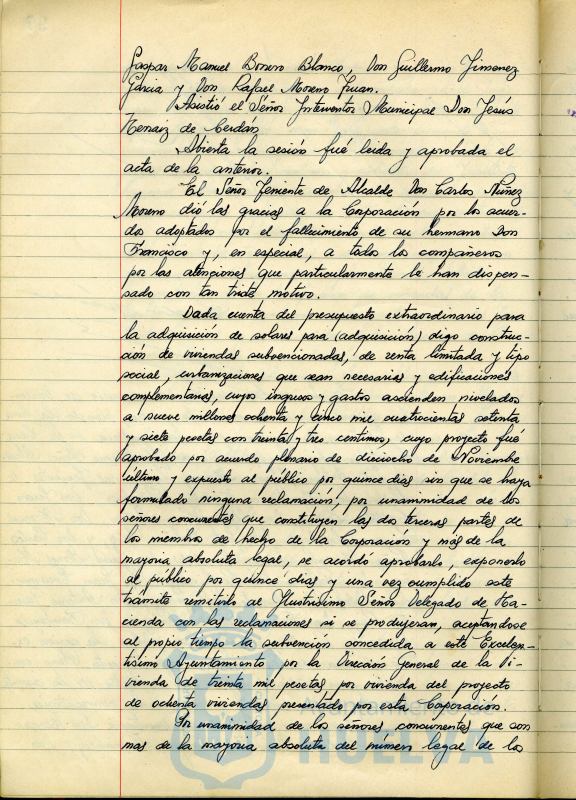 Gaspar Manuel Borrero Blanco, Don Guillermo Jimenez
Garcia y Don Rafael Moreno Juan.
Asistió el Señor Interventor Municipal Don Jesús
de Cerdán
Abierta la sesión fué leida y aprobada el
acta de la anterior.
El Señor Teniente de Alcalde Don Carlos Núñez
Moreno dió las gracias a la Corporación por los acuer-
dos adoptados por el fallecimiento de su hermano Don
Francisco y, en especial, a todos los compañeros
por las atenciones que particularmente le han dispen-
sado con tan triste motivo.
Dada cuenta del presupuesto extraordinario para
la adquisición de solares para (adquisición) digo construc-
ción de viviendas subvencionadas, de renta limitada y tipo
social, urbanizaciones que sean necesarias y edificaciones
complementarias, cuyos ingresos y gastos ascienden nivelados
a nueve millones ochenta y cinco mil cuatrocientas setenta
y siete pesetas con treinta y tres centimos, cuyo proyecto fué
aprobado por acuerdo plenario de dieciocho de Noviembre
último y expuesto al público por quince dias sin que se haya
formulado ninguna reclamación, por unanimidad de los
señores concurrentes que constituyen las dos terceras partes de
los miembros de hecho de la Corporación y más de la
mayoria absoluta legal, se acordó aprobarlo, exponerlo
al público por quince dias y una vez cumplido este
trámite remitirlo al Ilustrisimo Señor Delegado de Ha-
cienda con las reclamaciones si se produjeran, aceptandose
al propio tiempo la subvención concedida a este Excelen-
tisimo Ayuntamiento por la Dirección General de la Vi-
vienda de treinta mil pesetas por vivienda del proyecto
de ochenta viviendas presentado por esta Corporacion.
Por unanimidad de los señores concurrentes que son
mas de la mayoria absoluta del número legal de los
HUELVA